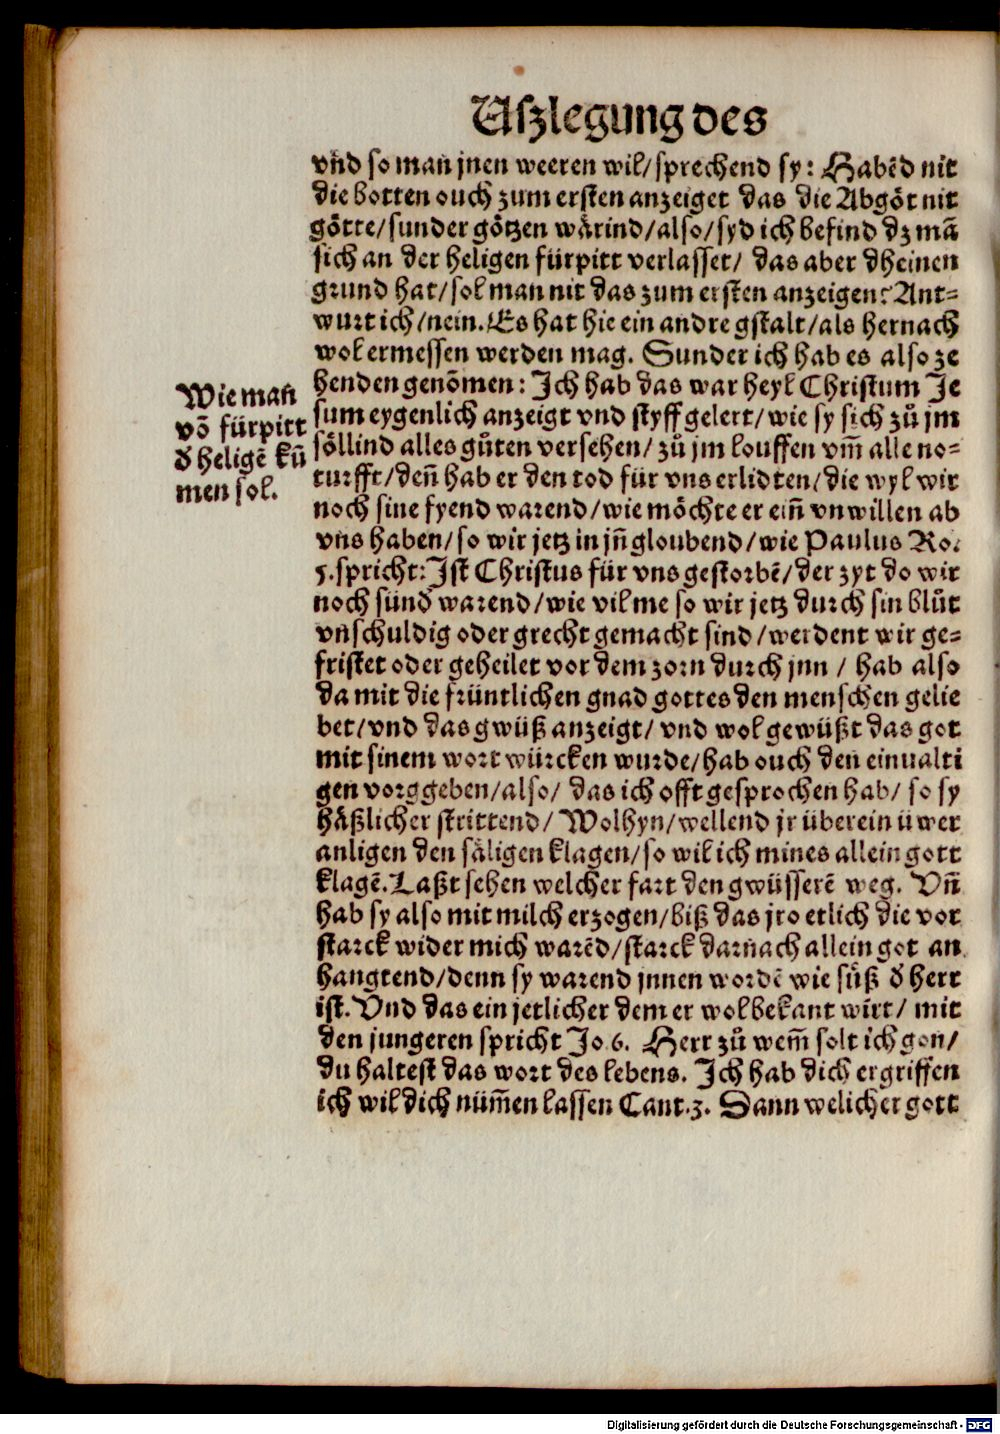 Uſzlegung des
vnd so man jnen weeren wil/sprechend sy: Habēd nit
die botten ouch zum ersten anzeiget das die Abgöt nit
götte/sunder götzen wärind/also/syd ich befind dz mā
sich an der heligen fürpitt verlasset/ das aber dheinen
grund hat/sol man nit das zum ersten anzeigen? Ant-
wurt ich/nein. Es hat hie ein andre gstalt/als hernach
wol ermessen werden mag. Sunder ich hab es also ze
henden genōmen: Ich hab das war heyl Christum Je
sum eygenlich anzeigt vnd styff gelert/wie sy sich zů jm
söllind alles gůten versehen/ zů jm louffen vm̄ alle no-
turfft/den̄ hab er den tod für vns erlidten/die wyl wir
noch sine fyend warend/wie möchte er ein̄ vnwillen ab
vns haben/so wir jetz in jn̄ gloubend/wie Paulus Ro.
5.spricht: Ist Christus für vns gestorbē/der zyt do wir
noch sünd̓ warend/wie vil me so wir jetz durch sin blůt
vnschuldig oder grecht gemacht sind/werdent wir ge-
fristet oder geheilet vor dem zorn durch jnn / hab also
da mit die früntlichen gnad gottes den menschen gelie
bet/vnd das gwüß anzeigt/ vnd wol gewüßt das got
mit sinem wort würcken wurde/hab ouch den einualti
gen vorggeben/also/ das ich offt gesprochen hab/ so sy
häßlicher strittend/ Wolhyn/wellend jr überein üwer
anligen den säligen klagen/so wil ich mines allein gott
klagē. Laßt sehen welcher fart den gwüsserē weg. Vn̄
hab sy also mit milch erzogen/biß das jro etlich die vor
starck wider mich warēd/starck darnach allein got an
hangtend/denn sy warend jnnen wordē wie süß d̓ herr
ist. Vnd das ein jetlicher dem er wol bekant wirt/ mit
den jungeren spricht Jo 6. Herr zů wem̄ solt ich gon/
du haltest das wort des lebens. Ich hab dich ergriffen
ich wil dich nüm̄en lassen Cant.3. Dann welicher gott
Wie man
vō fürpitt
d̓ heligē kū
men sol.
Digitalisierung gefördert durch die Deutsche Forschungsgemeinschaft - DFG